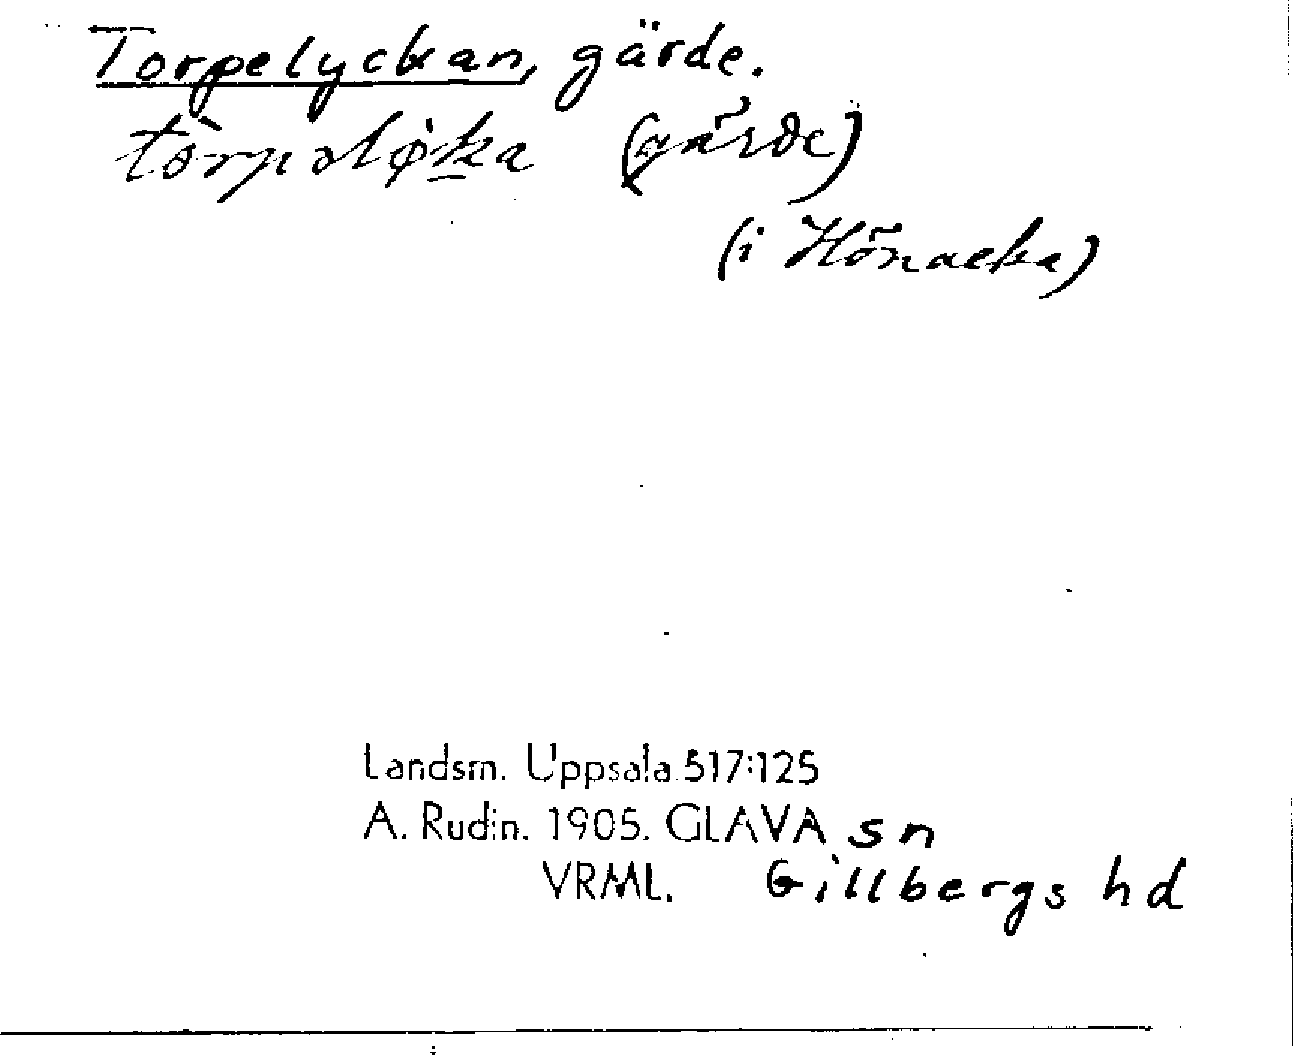 Torpelyckan, gärde.
(gärde)
(i Hönacka)
Landsm. Uppsala 517:125
A. Rudin. 1905. GLAVA sn
VRML. Gillbergs hd